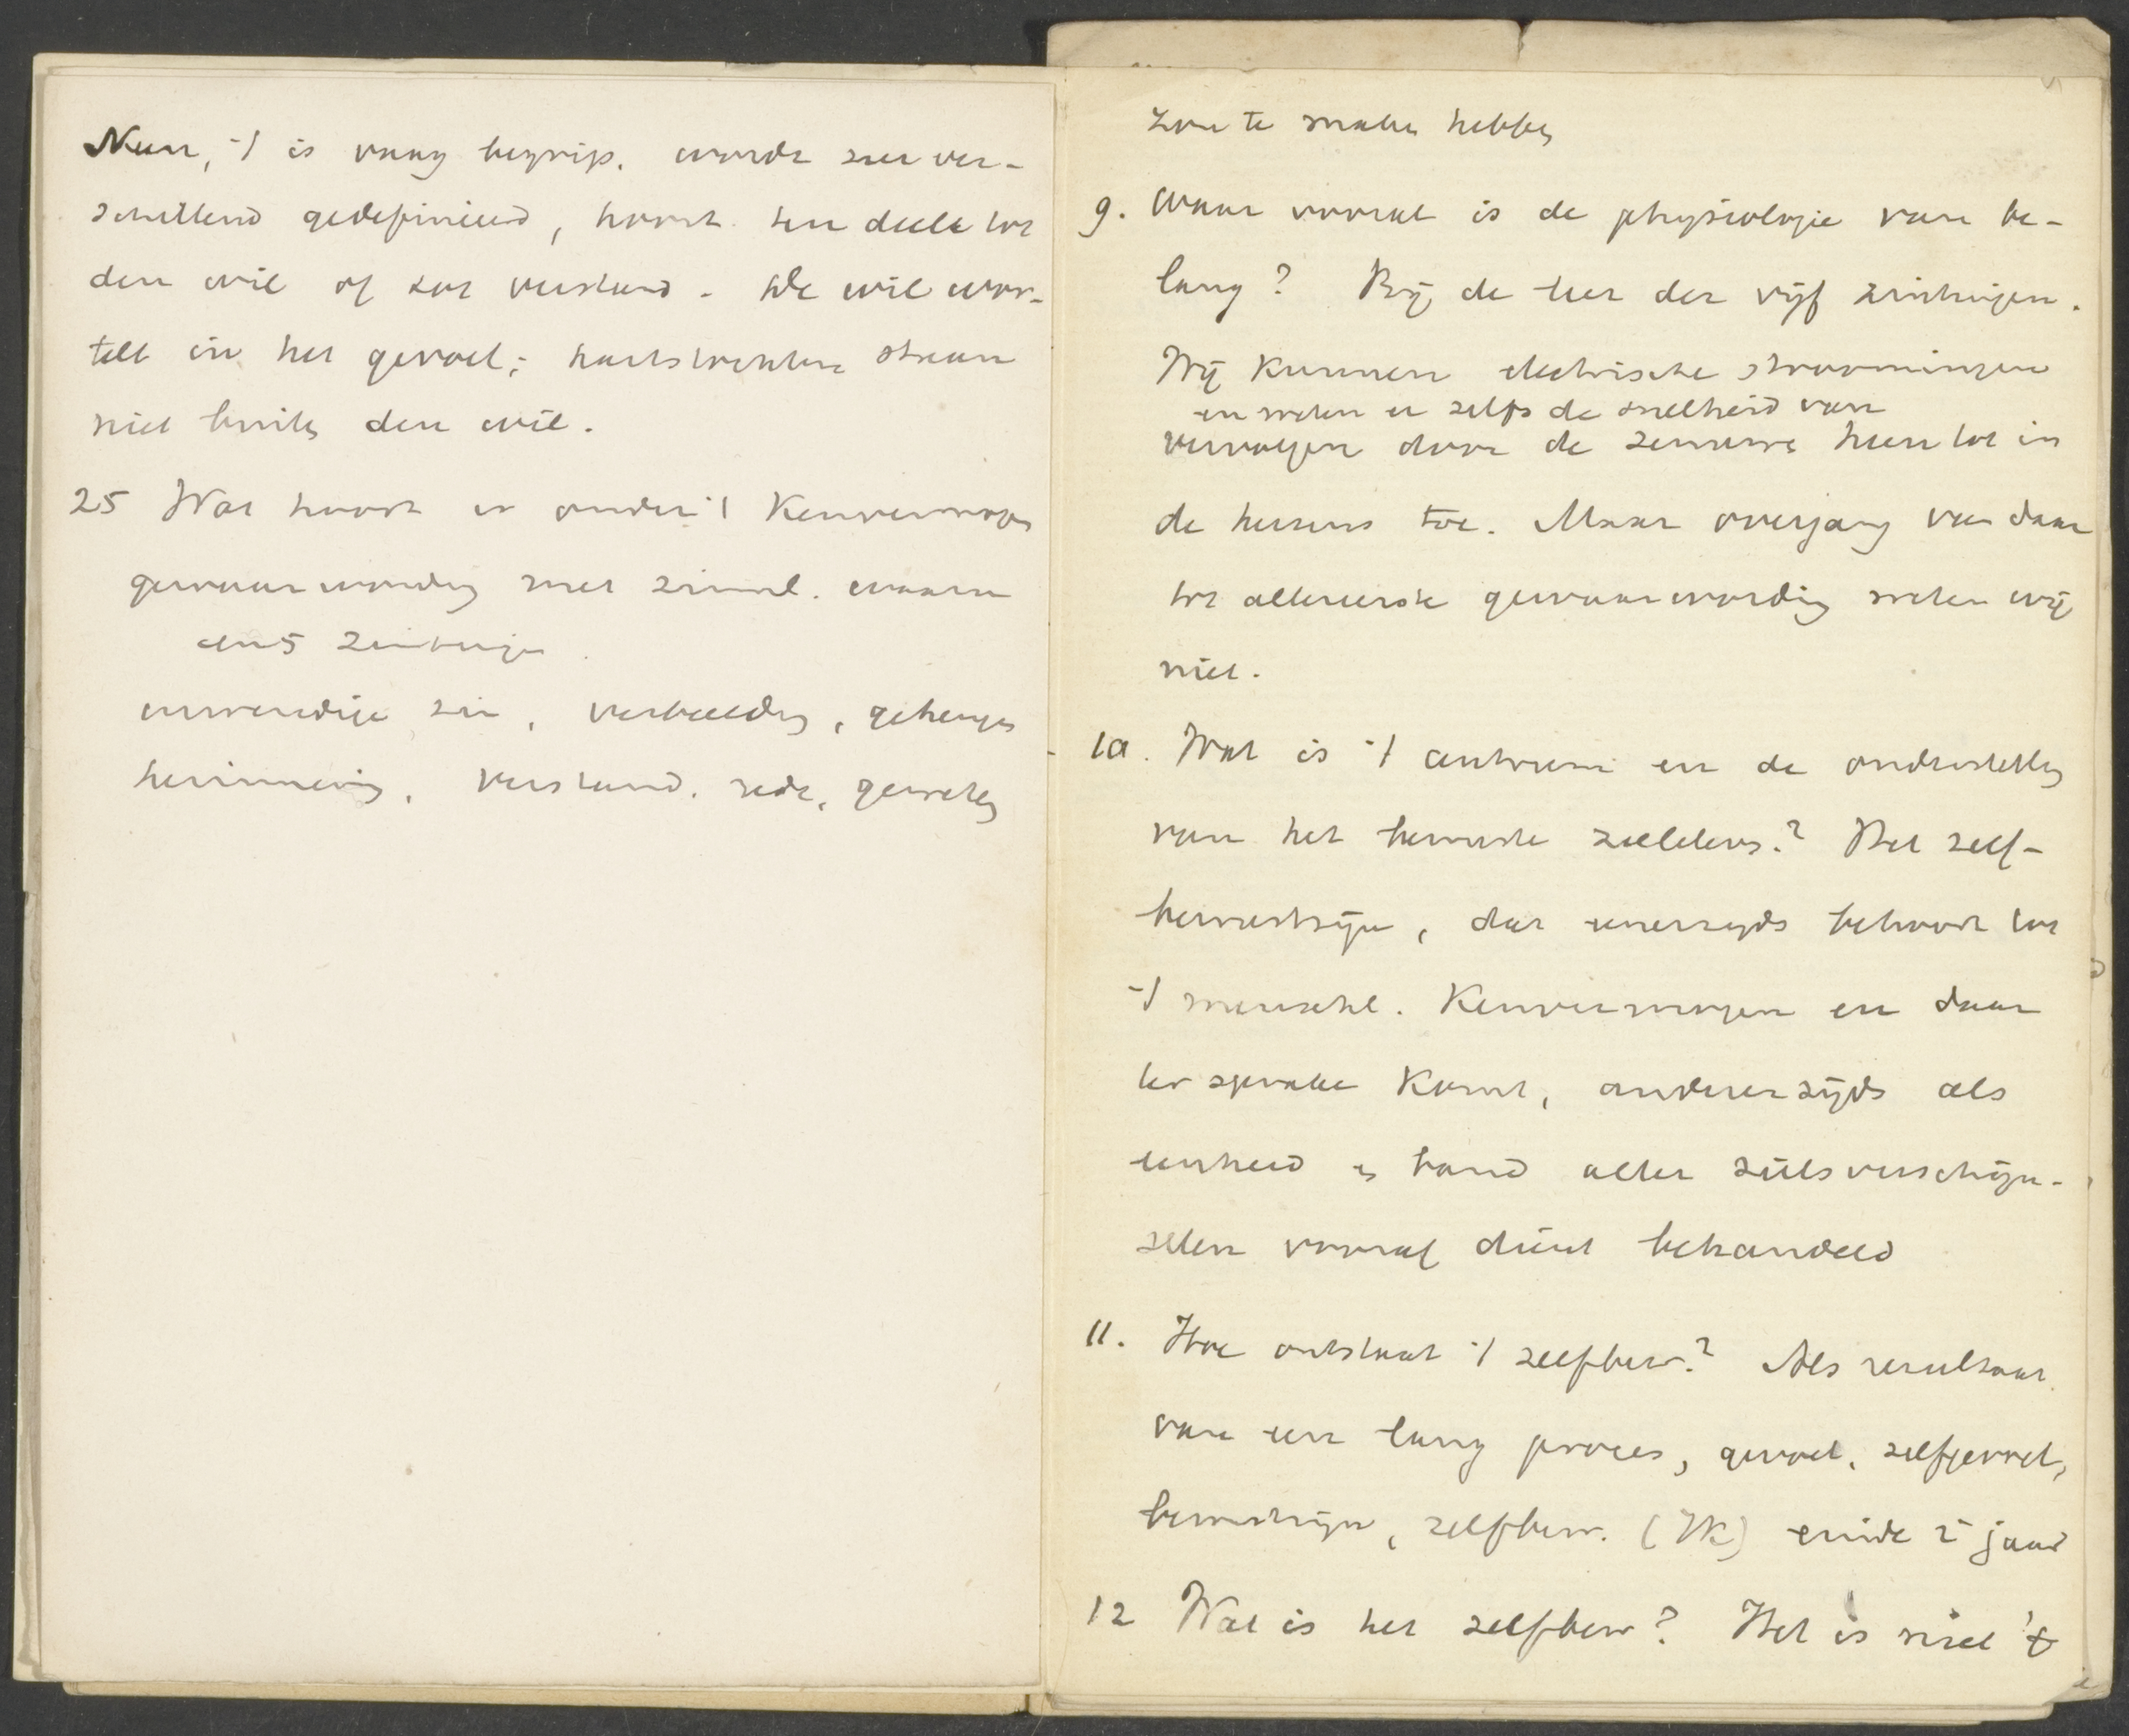 Neen, 't is vaag begrip. wordt zeer ver-
schillend gedefinieerd, hoort ten deele tot
den wil of tot verstand. De wil wor-
telt in het gevoel; hartstochten staan
niet buiten den wil.
25 Wat hoort er onder 't Kenvermogen
gewaarwording met zinnel. waarn
en 5 zintuigen
inwendige zin, verbeelding, geheugen
herinnering, verstand, rede, geweten
zou te maken hebben
9. Waar vooral is de physiologie van be-
lang? Bij de leer der vijf zintuigen.
Wij kunnen electrische stroomingen
en meten er zelfs de snelheid van
vervolgen door de zenuwen heen tot in
de hersens toe. Maar overgang van daar
tot allereerste gewaarwording weten wij
niet.
10. Wat is 't centrum en de onderstelling
van het bewuste zieleleven? Het zelf-
bewustzijn, dat eenerzijds behoort tot
't menschl. Kenvermogen en daar
ter sprake komt, anderzijds als
eenheid en band aller zielsverschijn-
selen vooraf dient behandeld
11. Hoe ontstaat 't zelfbew.? Als resultaat
van een lang proces, gevoel, zelfgevoel,
bewustzijn, zelfbew. (Ik) einde 2e jaar
12 Wat is het zelfbew? Het is niet